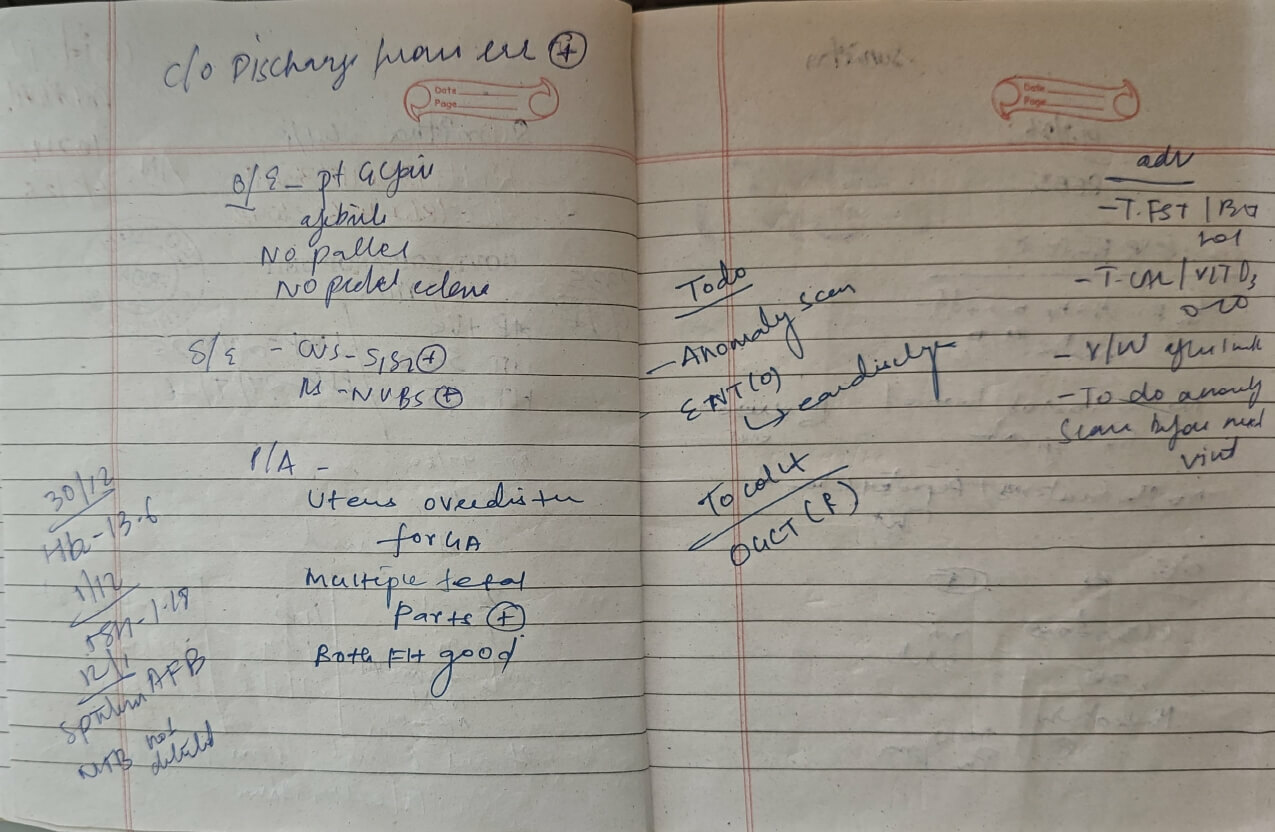 c/o Discharge from ear ⊕
Date
Page
O/E - pt GC fair
afebrile
No pallor
No pedal edema
S/E - CVS - S1S2 ⊕
RS - NVBS ⊕
P/A -
Uterus overdisten
for GA
Multiple fetal
Parts ⊕
Both FH good
30/12
Hb - 13.6
1/12
TSH - 1.18
12/1
Sputum AFB
MTB not
detected
Date
Page
To do
- Anomaly scan
ENT (O)
↳ ear discharge
To collect
OGCT (R)
adv
- T. FST / BD
- T. CAL / VIT D3
- r/w after 1 week
- To do anomaly
Scan before next
visit